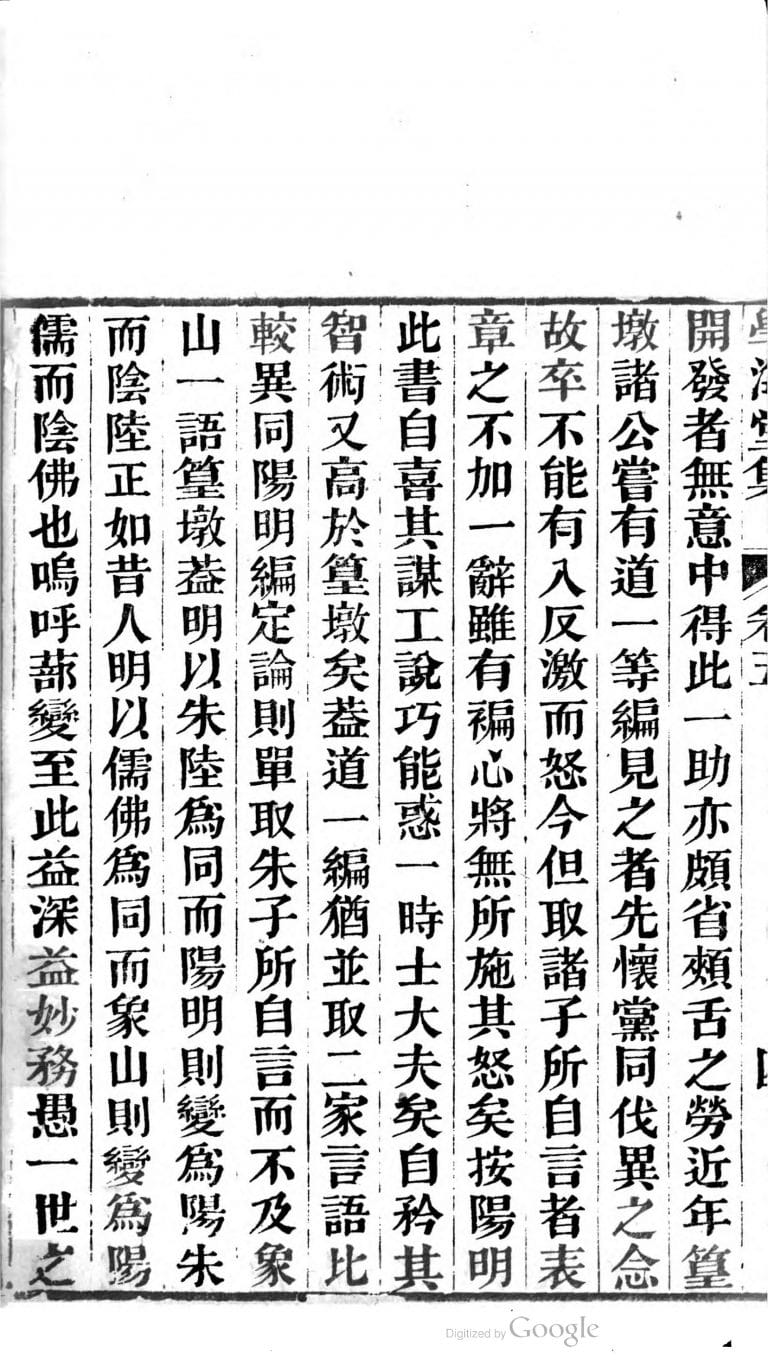 學海堂集 卷五 四
開發者無意中得此一助亦頗省頰舌之勞近年篁
墩諸公嘗有道一等編見之者先懷黨同伐異之念
故卒不能有入反激而怒今但取諸子所自言者表
章之不加一辭雖有褊心將無所施其怒矣按陽明
此書自喜其謀工說巧能惑一時士大夫矣自矜其
智術又高於篁墩矣葢道一編猶並取二家言語比
較異同陽明編定論則單取朱子所自言而不及象
山一語篁墩葢明以朱陸爲同而陽明則變爲陽朱
而陰陸正如昔人明以儒佛爲同而象山則變爲陽
儒而陰佛也嗚呼蔀變至此益深益妙務愚一世之
Digitized by Google